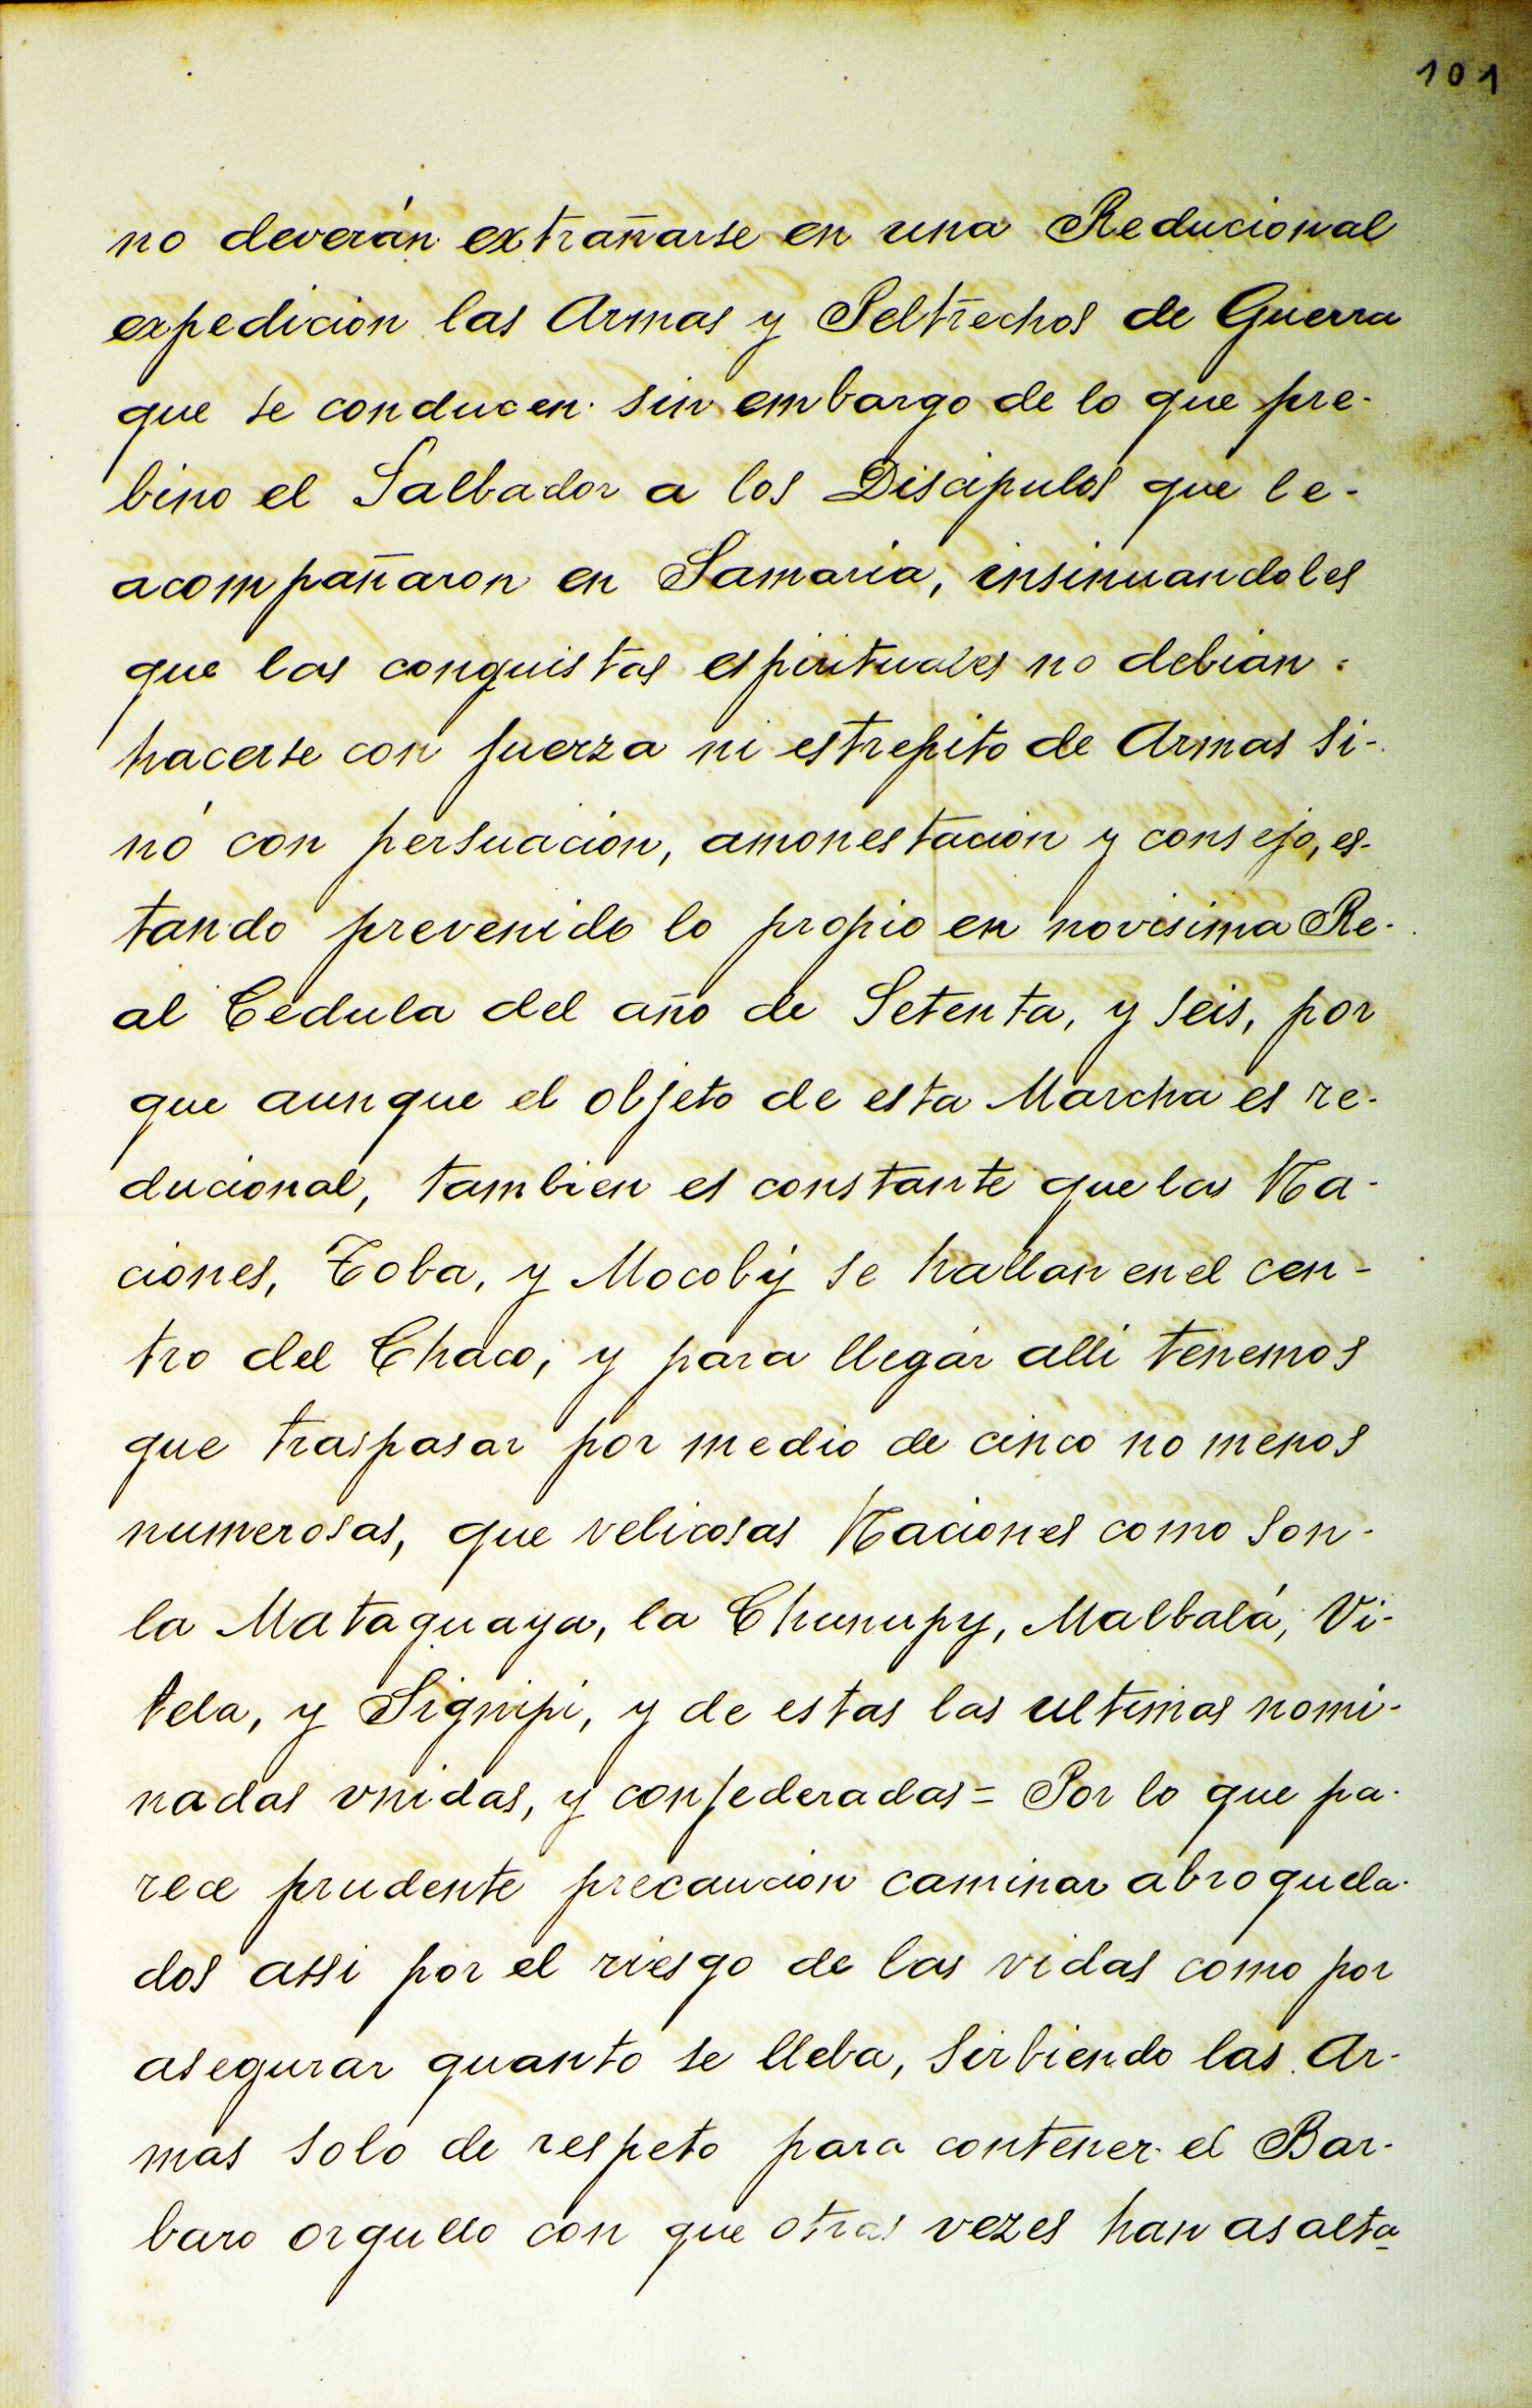 101
no deverán extrañarse en una Reducional
expedicion las Armas y Peltrechos de Guerra
que se conducen. sin embargo de lo que pre-
bino el Salbador a los Discipulos que le-
acompañaron en Samaria, insinuandoles
que las conquistas espirituales no debian.
hacerse con fuerza ni estrepito de Armas si-
nó con persuacion, amonestacion y consejo, es-
tando prevenido lo propio en novisima Re-
al Cedula del año de Setenta, y seis, por
que aunque el objeto de esta Marcha es re-
ducional, tambien es constante que las Na-
ciones, Toba, y Mocoby se hallan en el cen-
tro del Chaco, y para llegar alli tenemos
que traspasar por medio de cinco no menos
numerosas, que velicosas Naciones como son-
la Mataguaya, la Chunupy, Malbalá, Vi-
lela, y Signipi, y de estas las ultimas nomi-
nadas vnidas, y confederadas= Por lo que pa-
rece prudente precaucion caminar abroquela-
dos assi por el riesgo de las vidas como por
asegurar quanto se lleba, sirbiendo las Ar-
mas solo de respeto para contener el Bar-
baro orgullo con que otras vezes han asalta